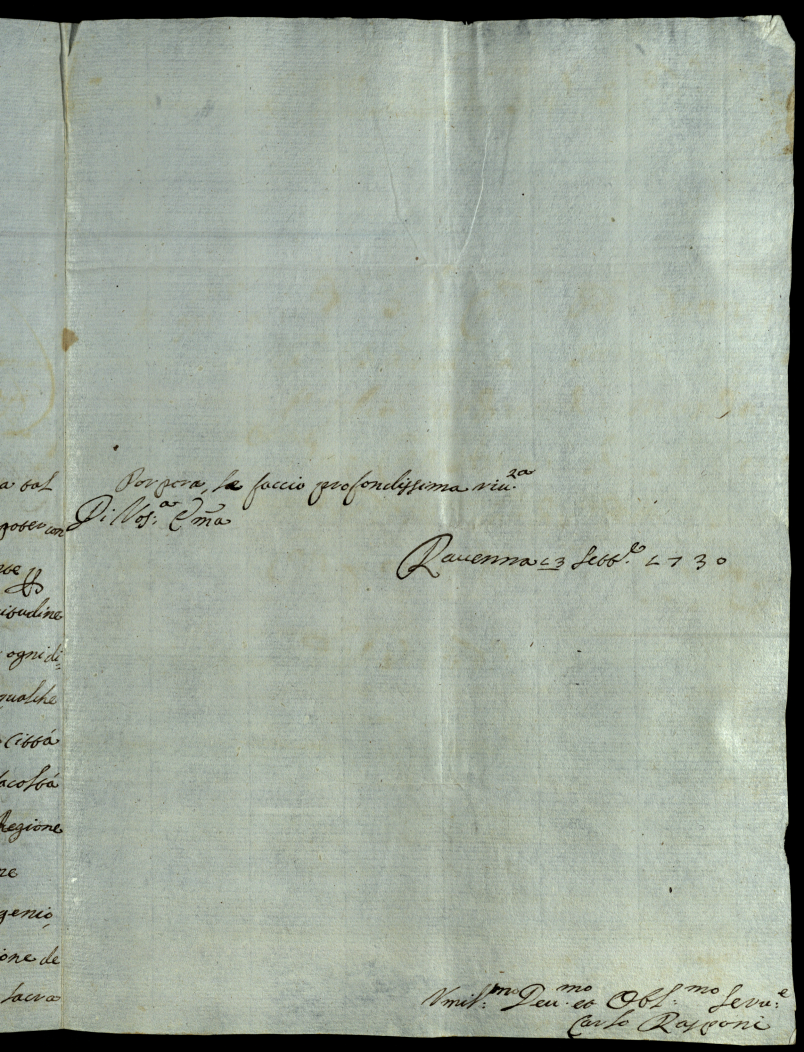 a tal
poter con
citudine
ogni di=
qualche
Città
facoltà
Regione
ne
genio,
ione de
sacra
Porpora, le faccio profondissima riu.za
Di Vos.a Em̃a
Rauenna 13 Sett.e 1730
Vmil.mo Deu.mo et Obl.mo Seru.e
Carlo Rasponi